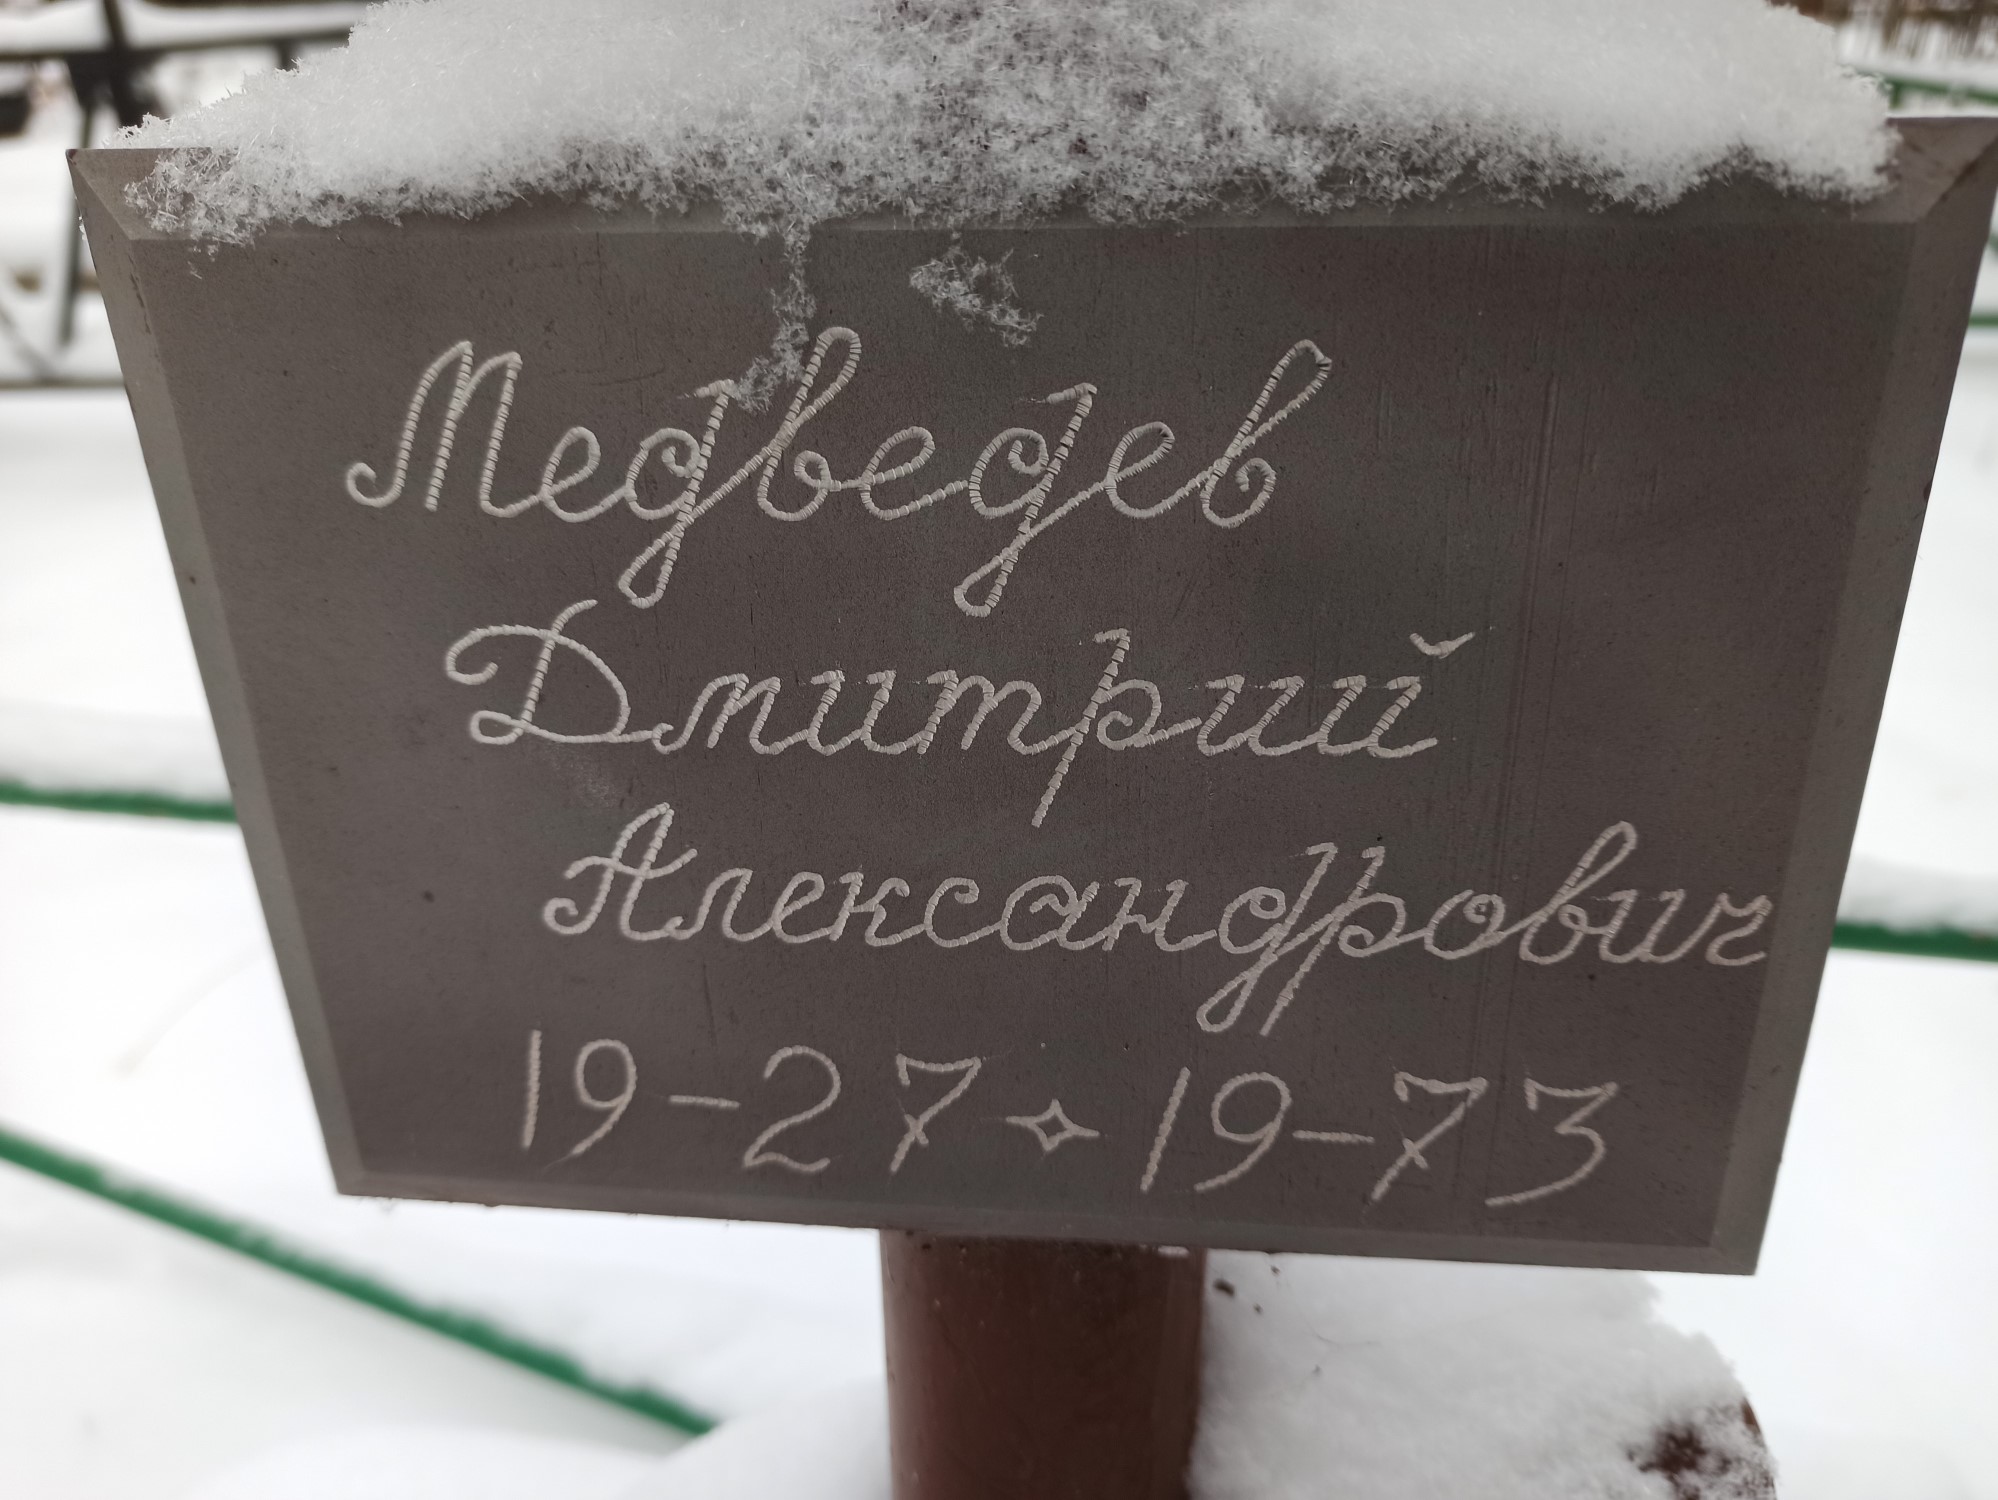 Медведев
Дмитрий
Александрович
19-27✧19-73